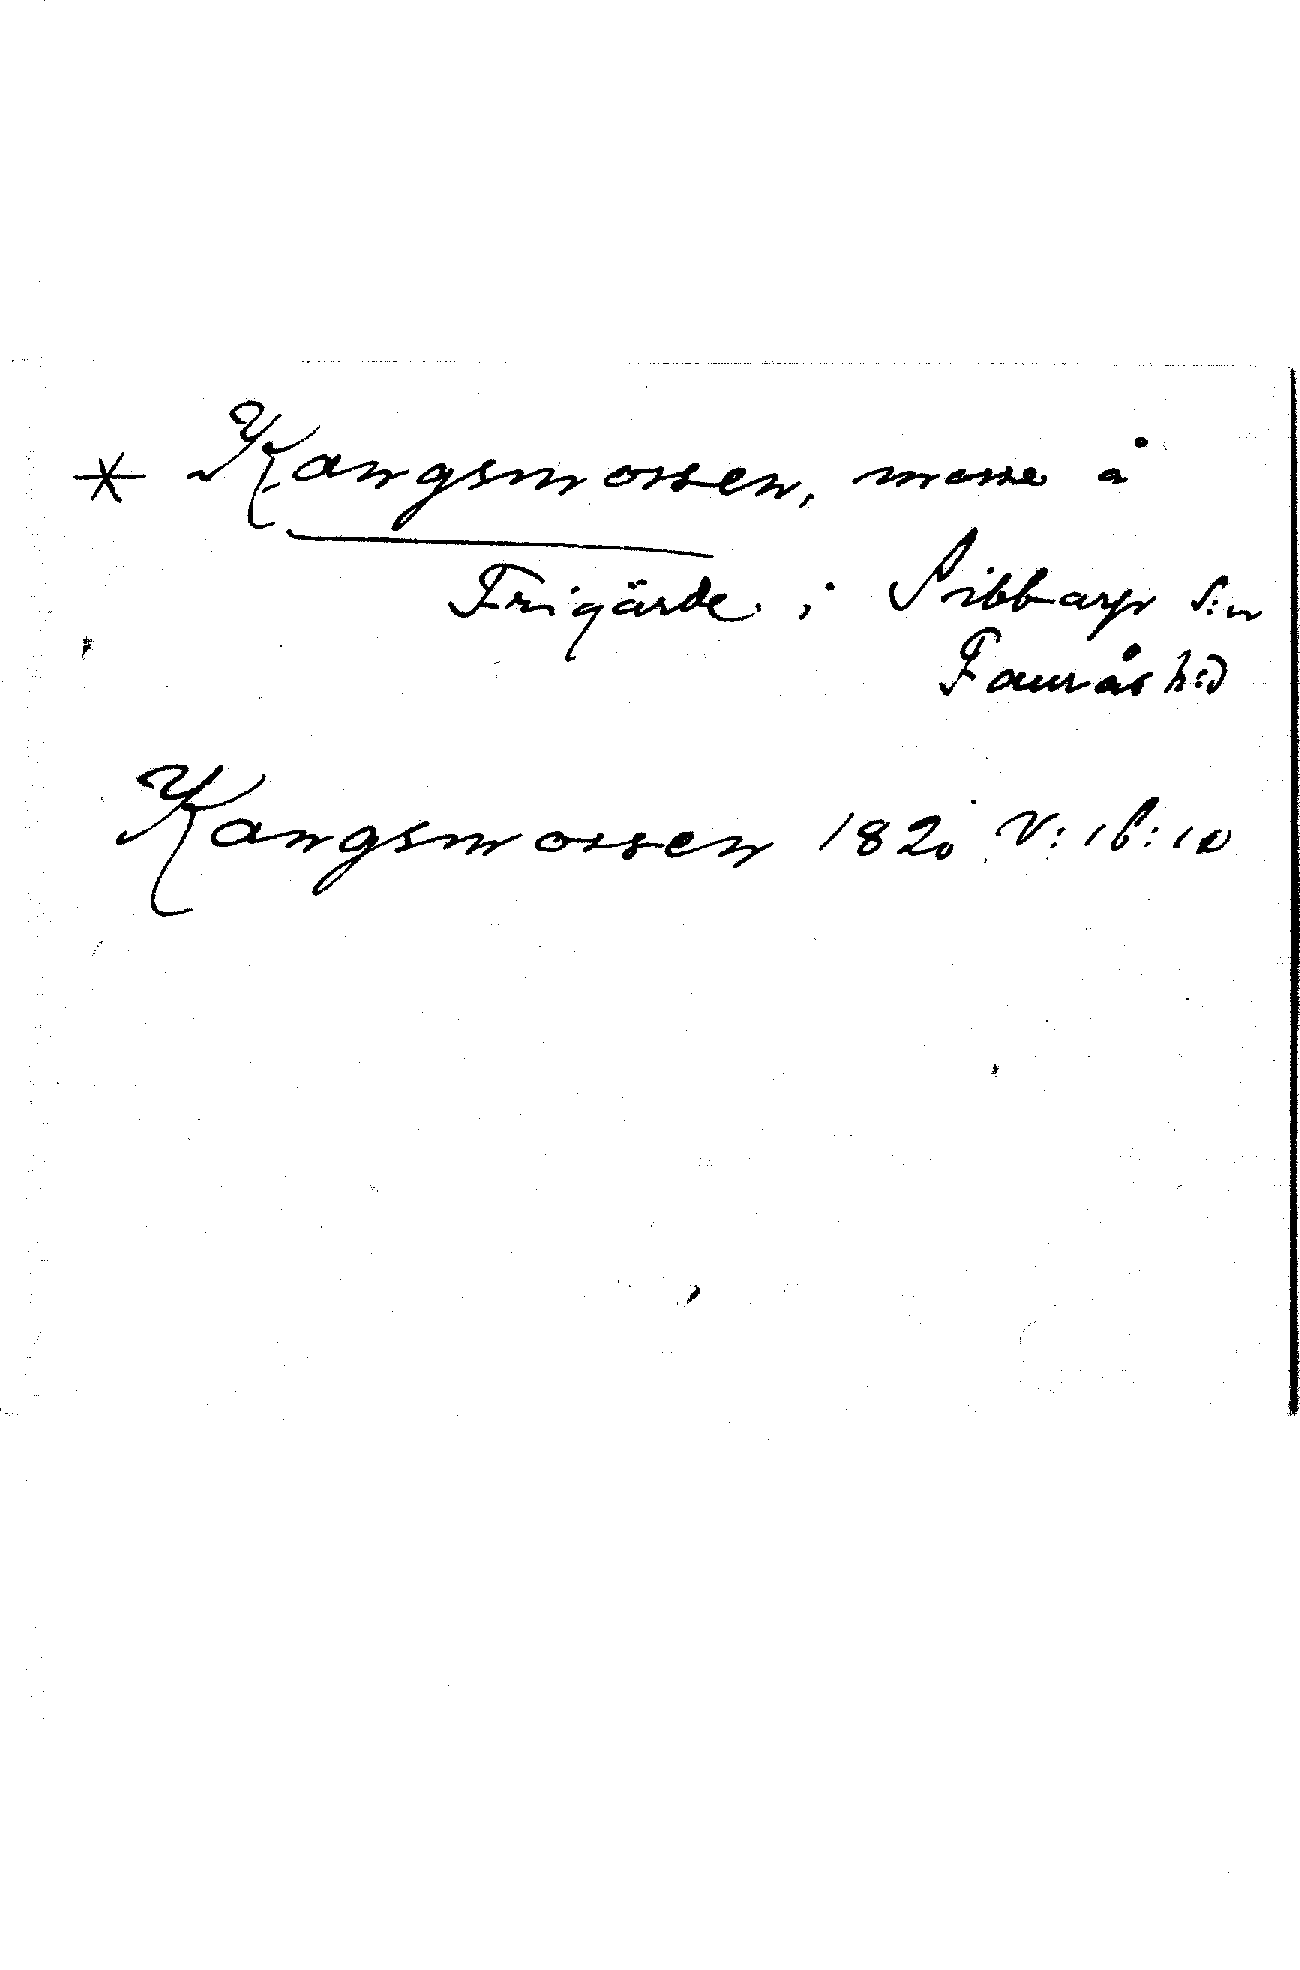 * Kangsmossen, mosse å
Frigärde i Sibbarp s:n
Faurås h:d
Kangsmossen 1820 V: 16: 10